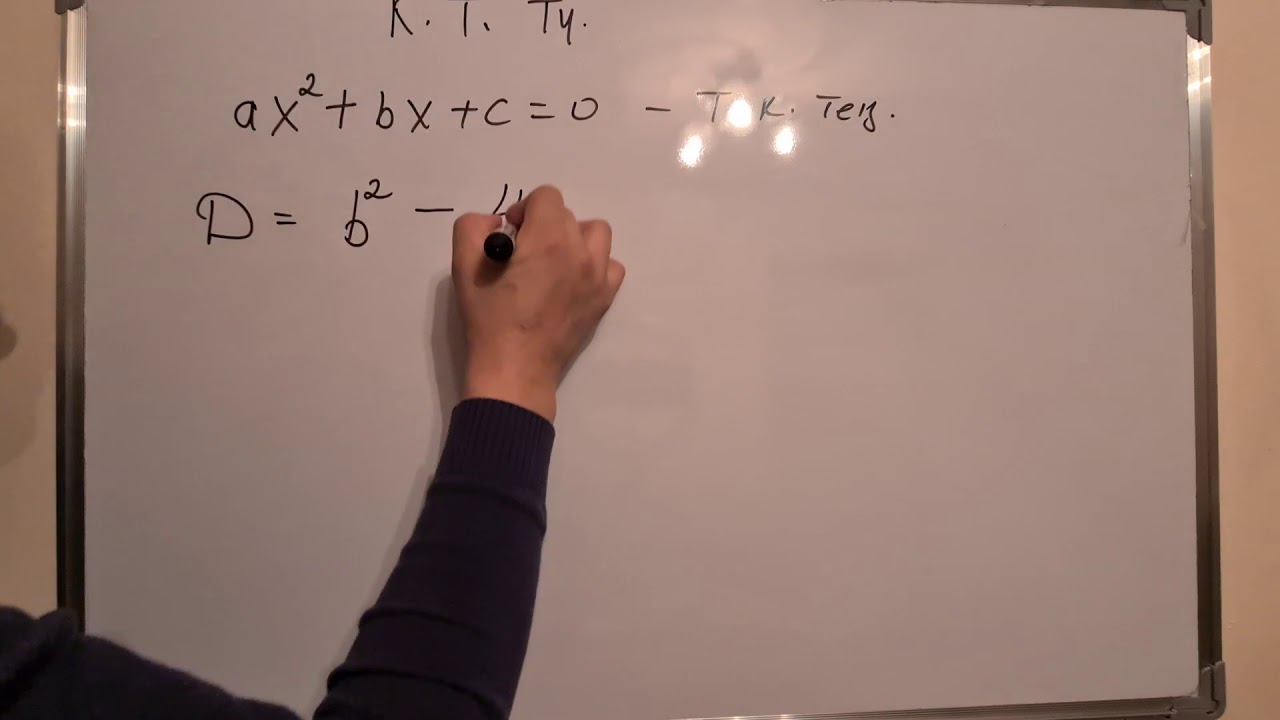 К. Т. Ту.
ax² + bx + c = 0 – Т. К. Тең.
D = b² – 4